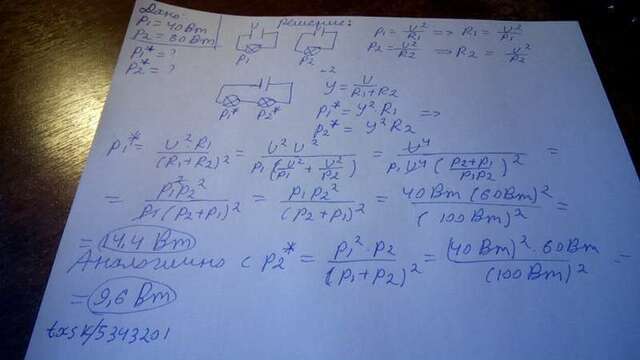 Дано: Решение:
P1 = 40 Вт
P2 = 60 Вт
P1* = ?
P2* = ?
P1 P2
P1 = U²/R1 => R1 = U²/P1
P2 = U²/R2 => R2 = U²/P2
P1* P2*
y = U/(R1+R2)
P1* = y² R1 =>
P2* = y² R2
P1* = U² R1/(R1+R2)² = U² U²/P1(U²/P1 + U²/P2)² = U⁴/P1 U⁴ ((P2+P1)/P1P2)² =
= P1² P2²/P1 (P2+P1)² = P1 P2²/(P2+P1)² = 40 Вт (60 Вт)²/(100 Вт)² =
= 14,4 Вт
Аналогично с P2* = P1² · P2/(P1+P2)² = (40 Вт)² · 60 Вт/(100 Вт)² =
= 9,6 Вт
txsk/5343201